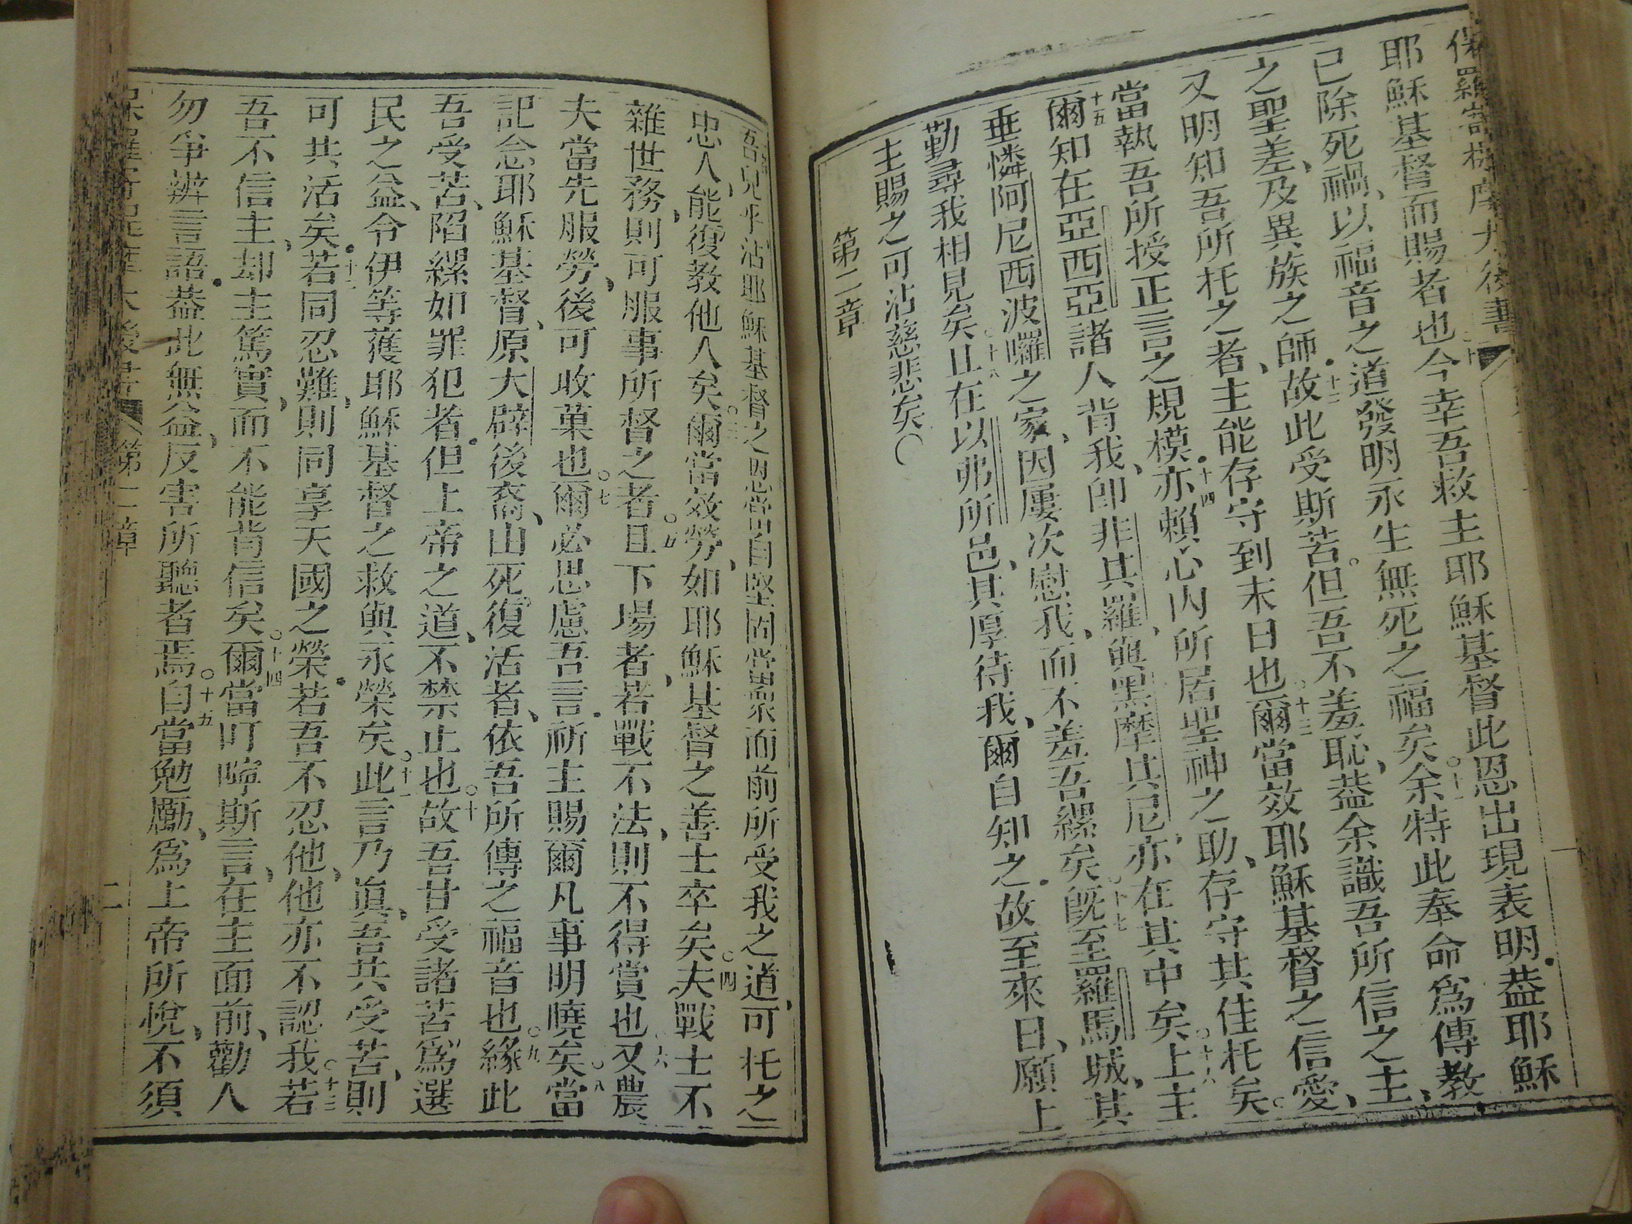 耶穌基督而賜者也今幸吾救主耶穌基督此恩出現表明葢耶穌
已除死禍、以福音之道發明永生無死之福矣○十一余特此奉命爲傳教
之聖差、及異族之師。十二故此受斯苦。但吾不羞恥、葢余識吾所信之主、
又明知吾所托之者、主能存守到末日也○十三爾當效耶穌基督之信愛、
當執吾所授正言之規模。十四亦賴心內所居聖神之助、存守其佳托矣。
十五爾知在亞西亞諸人背我、卽非其羅與黑摩其尼、亦在其中矣○十六上主
垂憐阿尼西波囉之家、因屢次慰我、而不羞吾縲矣○十七旣至羅馬城、其
勤尋我相見矣○十八且在以弗所邑、其厚待我、爾自知之。故至來日、願上
主賜之可沾慈悲矣○
第二章
吾兒乎沾耶穌基督之恩當自堅固當眾而前所受我之道、可托之
忠人、能復教他人矣○三爾當效勞、如耶穌基督之善士卒矣○四夫戰士不
雜世務、則可服事所督之者○五且下場者、若戰不法、則不得賞也○六又農
夫當先服勞、後可收菓也○七爾必思慮吾言。祈主賜爾凡事明曉矣○八當
記念耶穌基督、原大辟後裔、由死復活者、依吾所傳之福音也○九緣此
吾受苦、陷縲如罪犯者。但上帝之道、不禁止也○十故吾甘受諸苦、爲選
民之益、令伊等獲耶穌基督之救與永榮矣○十一此言乃眞、吾共受苦、則
可共活矣。十二若同忍難、則同享天國之榮。若吾不忍他、他亦不認我○十三若
吾不信主、却主篤實、而不能背信矣○十四爾當叮嚀斯言、在主面前、勸人
勿爭辨言語。葢此無益、反害所聽者焉○十五自當勉勵、爲上帝所悅、不須
二